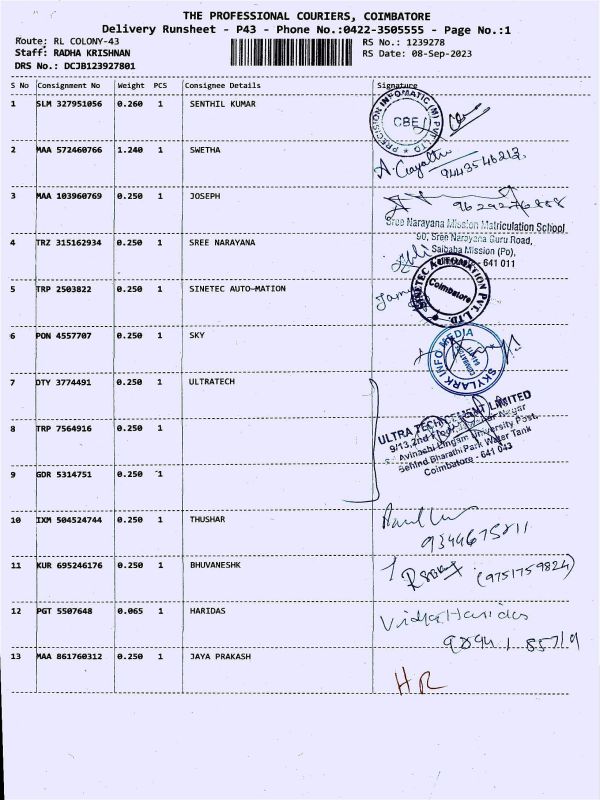 THE PROFESSIONAL COURIERS, COIMBATORE
Delivery Runsheet - P43 - Phone No.:0422-3505555 - Page No.:1
Route: RL COLONY-43 RS No.: 1239278
Staff: RADHA KRISHNAN RS Date: 08-Sep-2023
DRS No.: DCJB123927801
S No Consignment No Weight PCS Consignee Details Signature
1 SLM 327951056 0.260 1 SENTHIL KUMAR
PRECISION INFOMATIC (M) PVT LTD
CBE
2 MAA 572460766 1.240 1 SWETHA
A. Gayathri 9443546213
3 MAA 103960769 0.250 1 JOSEPH
9629276888
Sree Narayana Mission Matriculation School,
4 TRZ 315162934 0.250 1 SREE NARAYANA
90, Sree Narayana Guru Road,
Saibaba Mission (Po),
- 641 011
5 TRP 2503822 0.250 1 SINETEC AUTO-MATION
SINETEC AUTOMATION PVT. LTD.
Coimbatore
6 PON 4557707 0.250 1 SKY
SKYLARK INFO MEDIA
7 DTY 3774491 0.250 1 ULTRATECH
ULTRA TECH CEMENT LIMITED
9/13, 2nd Nagar
8 TRP 7564916 0.250 1
Avinashi Lingam University Post,
Behind Bharathi Park Water Tank
Coimbatore - 641 043
9 GDR 5314751 0.250 1
10 IXM 504524744 0.250 1 THUSHAR
9344675811
11 KUR 695246176 0.250 1 BHUVANESHK
(9751759824)
12 PGT 5507648 0.065 1 HARIDAS
Vidya Haridas
98941 85719
13 MAA 861760312 0.250 1 JAYA PRAKASH
HR